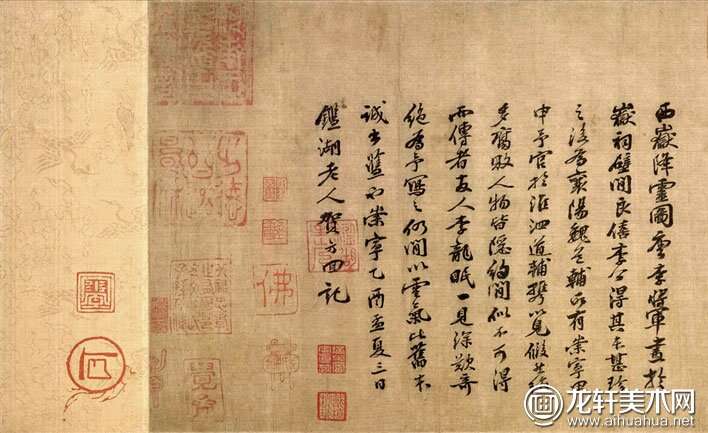 西嶽降靈圖唐李將軍畫於
嶽祠壁間良僖李公得其本甚珍
之後為襄陽魏公輔所有崇寧甲
申予官於淮泗道輔携以見假其
多腐敗人物皆隱約間似不可得
而傳者友人李龍眠一見深歎奇
絕為予寫之仍間以雲氣比舊本
誠出藍也崇寧乙酉孟夏三日
鑑湖老人賀方回記
佛
画 龙轩美术网
www.aihuahua.net